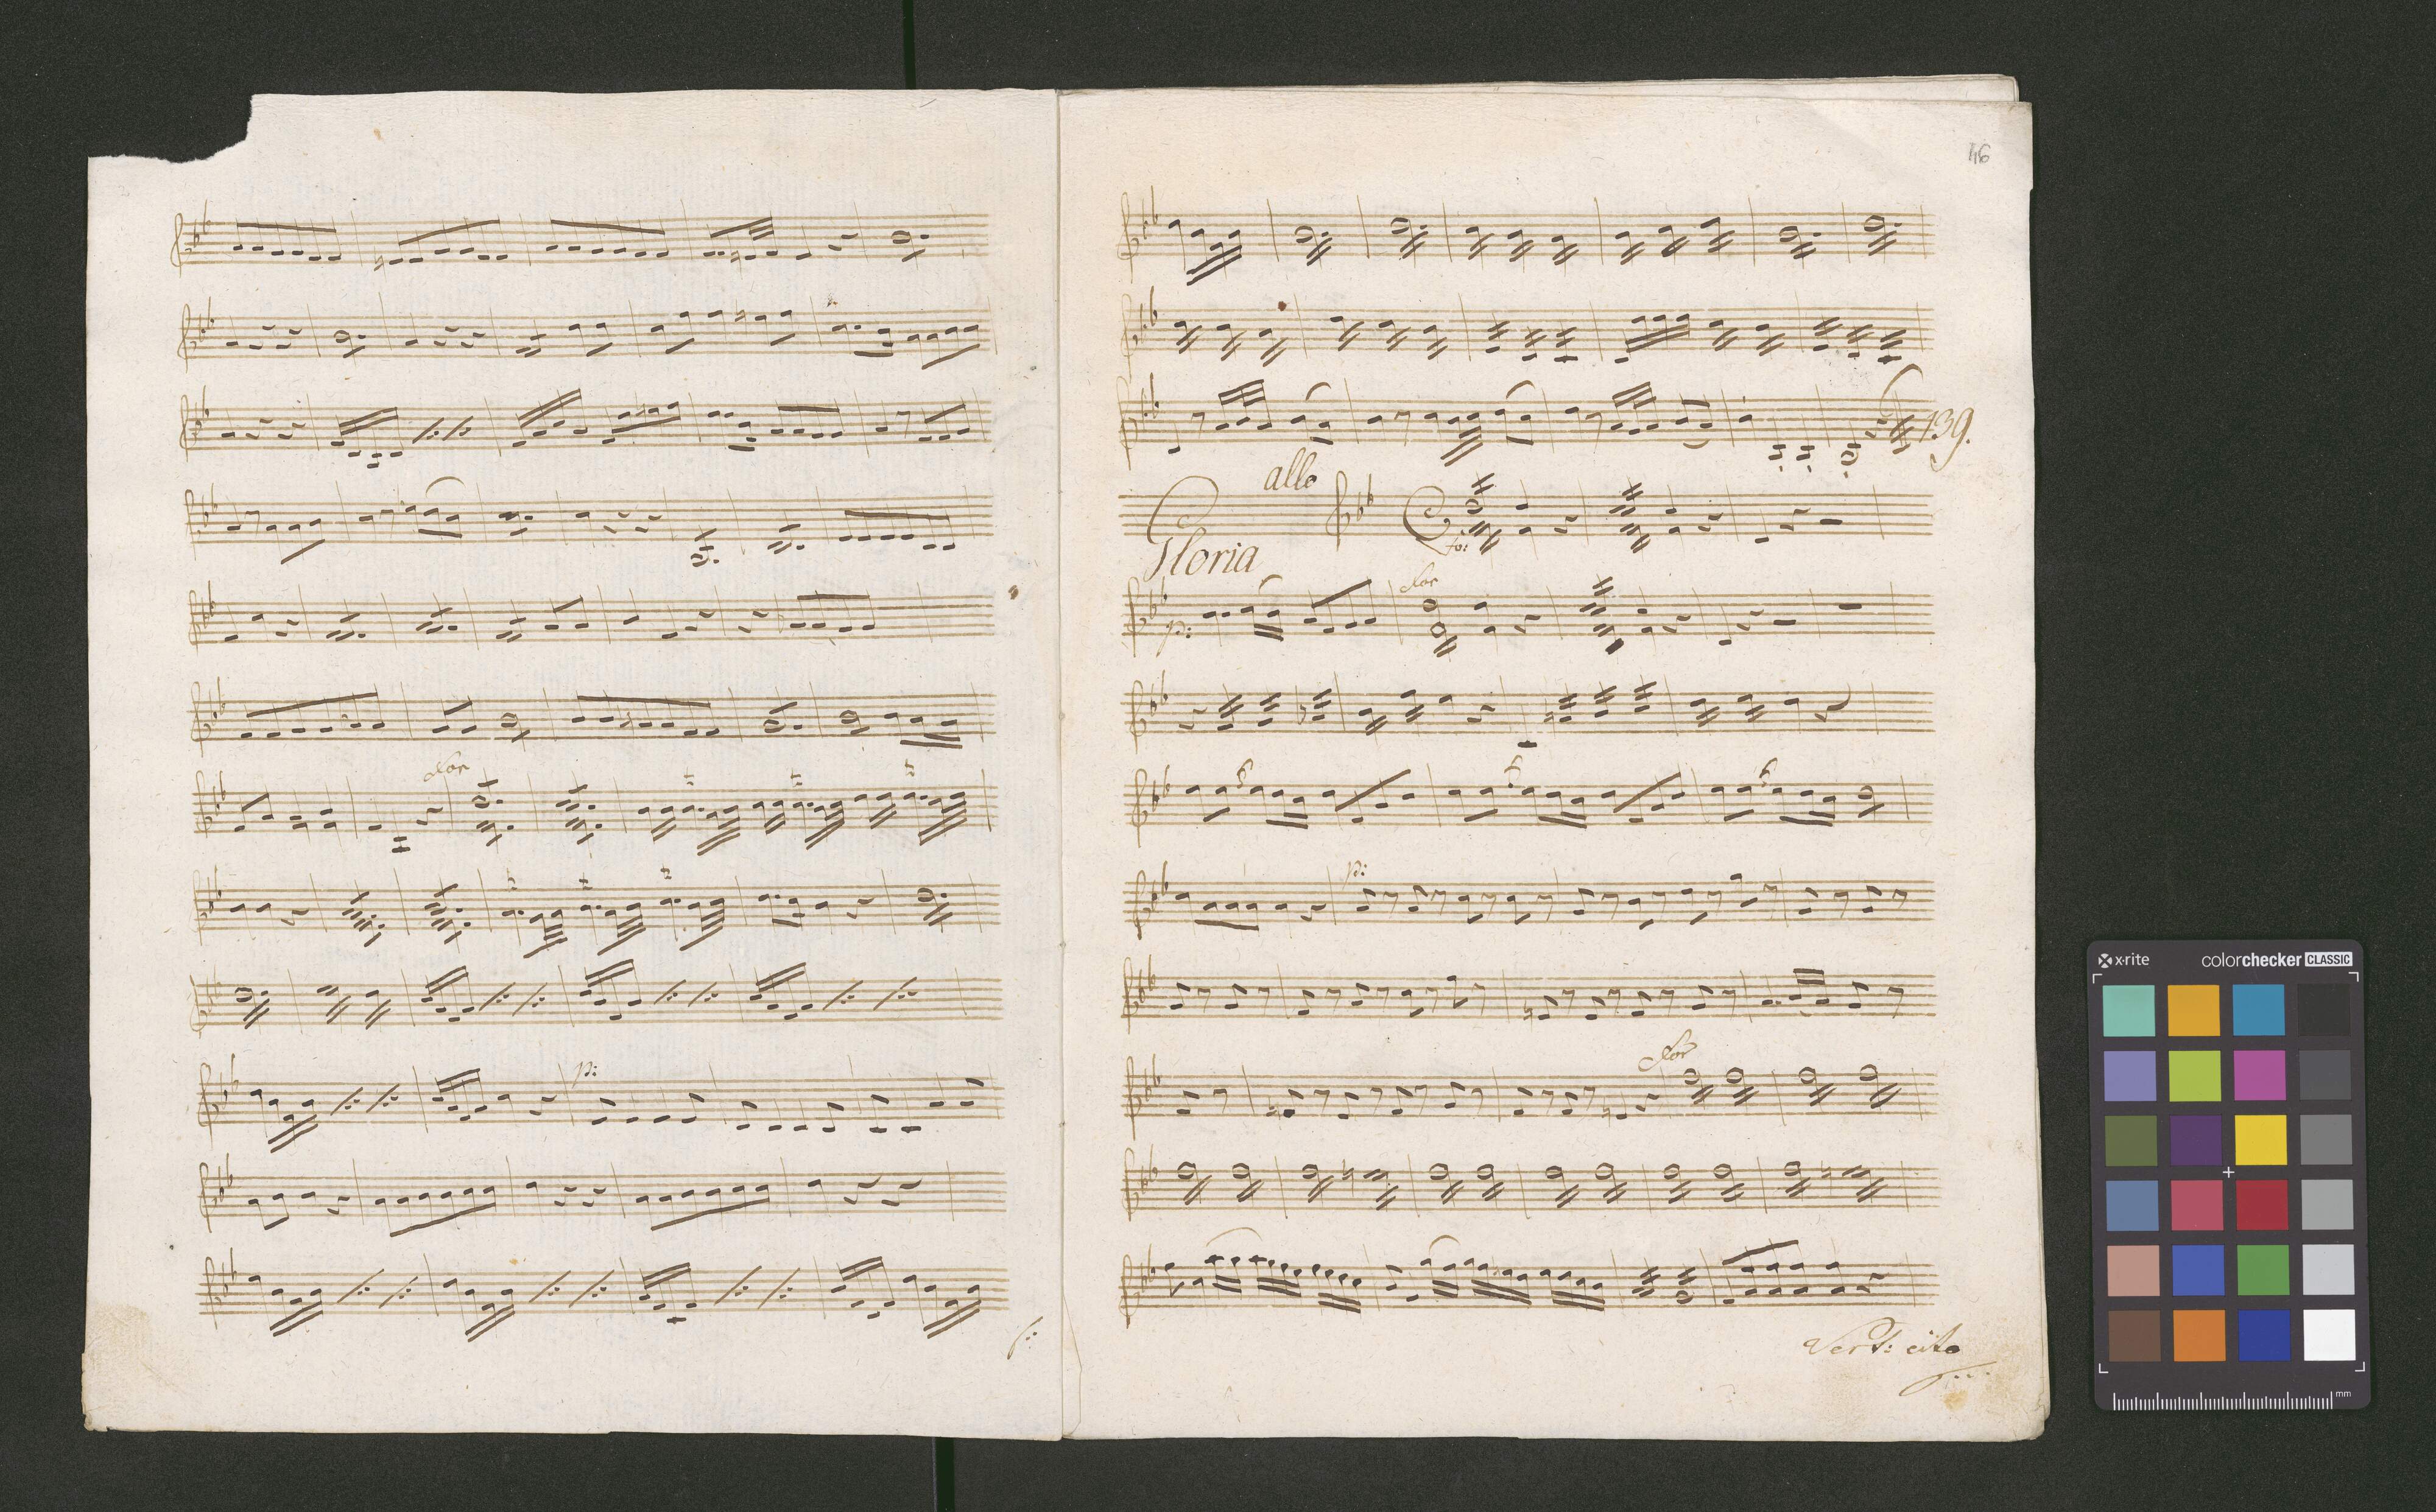 for
p:
46
139.
allo
Gloria
fo:
p:
for
6
6
6
p:
for
Vert: cito
x-rite
colorchecker CLASSIC
mm